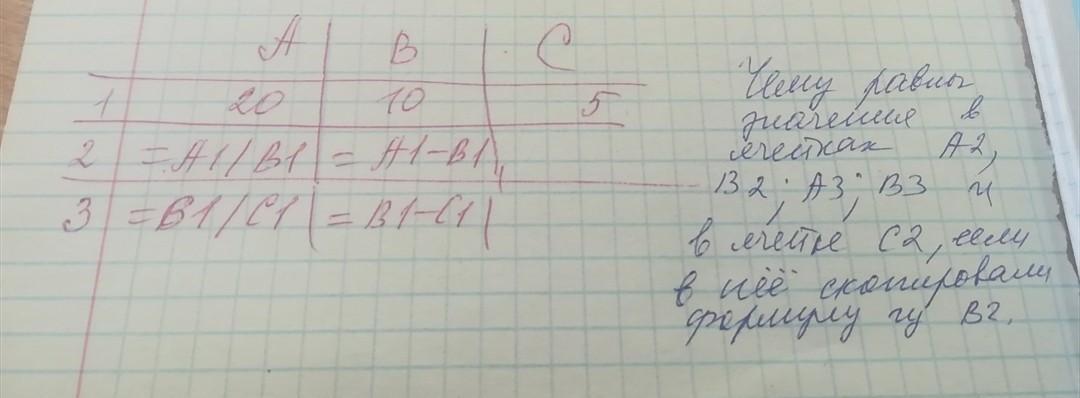 A B C
1 20 10 5
2 =A1/B1 = A1-B1
3 =B1/C1 = B1-C1
Чему равны
значения в
ячейках A2,
B2; A3; B3 и
в ячейке C2, если
в неё скопировали
формулу из B2.